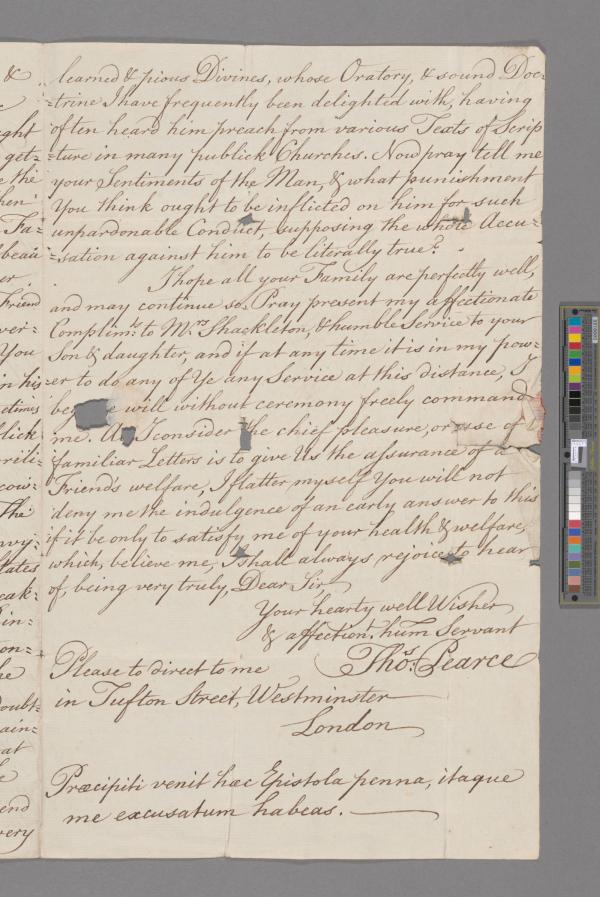 learned & pious Divines, whose Oratory, & sound Doc-
-trine I have frequently been delighted with, having
often heard him preach from various Texts of Scrip
-ture in many publick Churches. Now pray tell me
your Sentiments of the Man, & what punishment
You think ought to be inflicted on him for such
unpardonable Conduct, supposing the whole Accu-
-sation against him to be literally true?
I hope all your Family are perfectly well,
and may continue so. Pray present my affectionate
Complimts. to Mrs. Shackleton, & humble Service to your
Son & daughter, and if at any time it is in my pow-
-er to do any of Ye any Service at this distance, I
beg will without ceremony freely command
me. As I consider the chief pleasure, or use of
familiar Letters is to give Us the assurance of a
Friend's welfare, I flatter myself You will not
deny me the indulgence of an early answer to this
if it be only to satisfy me of your health & welfare,
which, believe me, I shall always rejoice to hear
of, being very truly, Dear Sir
Your hearty well Wisher
& affectiont. hum Servant
Thos. Pearce
Please to direct to me
in Tufton Street, Westminster
London
Præcipiti venit hæc Epistola penna, itaque
me excusatum habeas.